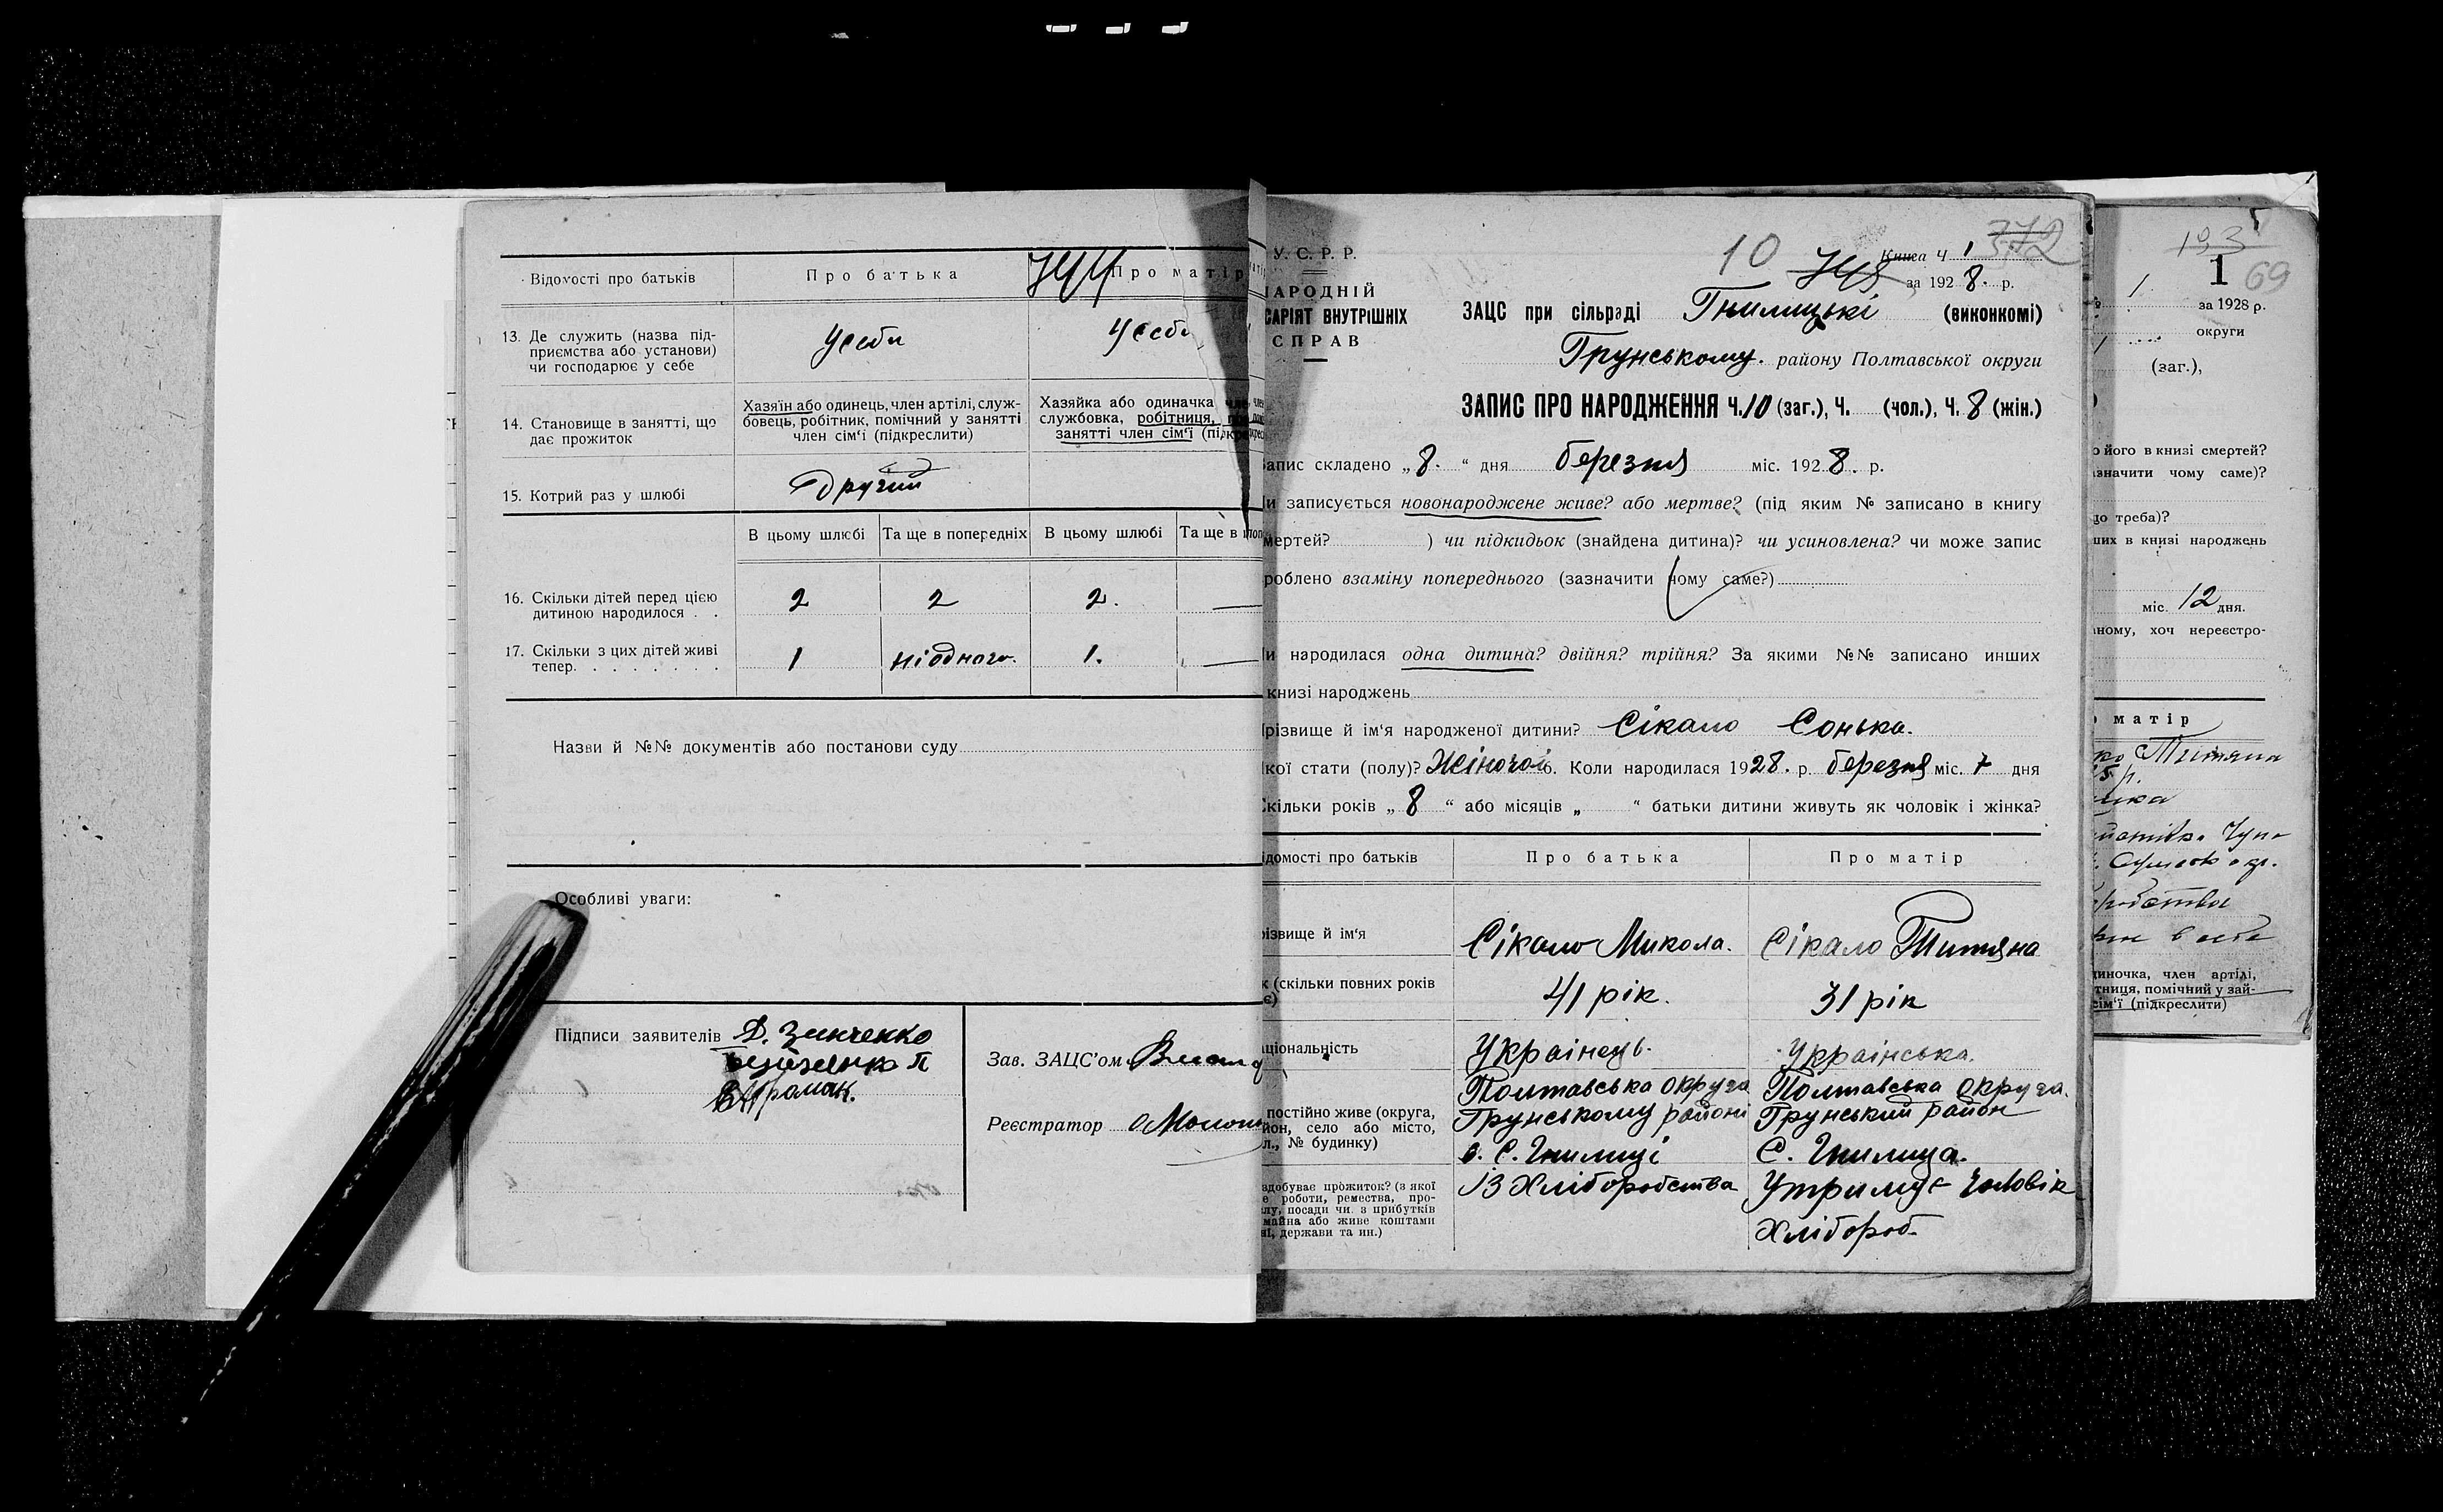 Відомості про батьків
Про батька
Про матір
744
13. Де служить (назва під-
приємства або установи)
чи господарює у себе
Усебе
Усебе
14. Становище в занятті, що
дає прожиток
Хазяїн або одинець, член артілі, служ-
бовець, робітник, помічний у занятті
член сім'ї (підкреслити)
Хазяйка або одиначка
службовка, робітниця,
занятті член сім'ї
15. Котрий раз у шлюбі
Другий
В цьому шлюбі
Та ще в попередніх
В цьому шлюбі
Та ще в
16. Скільки дітей перед цією
дитиною народилося . .
2
2
2.
—
17. Скільки з цих дітей живі
тепер. . . . . . . .
1
ніодного.
1.
—
Назви й №№ документів або постанови суду
Особливі уваги:
Підписи заявителів Д. Зинченко
Зав. ЗАЦС'ом
Реєстратор
У. С. Р. Р.
АРОДНІЙ
САРІЯТ ВНУТРІШНІХ
СПРАВ
10
Книга Ч 1
372
за 1928. р.
ЗАЦС при сільраді Гнилицькі (виконкомі)
Грунському. району Полтавської округи
ЗАПИС ПРО НАРОДЖЕННЯ Ч. 10 (заг.), Ч. (чол.), Ч. 8 (жін.)
апис складено „8." дня березня міс. 1928. р.
и записується новонароджене живе? або мертве? (під яким № записано в книгу
мертей? ) чи підкидьок (знайдена дитина)? чи усиновлена? чи може запис
роблено взаміну попереднього (зазначити чому саме?)
и народилася одна дитина? двійня? трійня? За якими №№ записано инших
книзі народжень
різвище й ім'я народженої дитини? Сікало Сонька.
кої стати (полу)? Жіночої 6. Коли народилася 1928. р. березня міс. 7 дня
кільки років „8" або місяців „ " батьки дитини живуть як чоловік і жінка?
ідомості про батьків
Про батька
Про матір
різвище й ім'я
Сікало Микола.
Сікало Титяна
к (скільки повних років
є)
41 рік.
31 рік
аціональність
Українець.
Українська.
постійно живе (округа,
йон, село або місто,
л., № будинку)
Полтавська округа
Грунському районі
в. С. Гнилиці
Полтавська округа.
Грунський район
С. Гнилиця.
здобуває прожиток? (з якої
е роботи, ремества, про-
лу, посади чи з прибутків
майна або живе коштами
ні, держави та ин.)
Із Хліборобства
Утримує Чоловік
Хлібороб.
193
1
69
1
за 1928 р.
округи
(заг.),
о його в книзі смертей?
значити чому саме)?
що треба)?
ших в книзі народжень
міс. 12 дня.
ному, хоч нереєстро-
матір
Титяна
диночка, член артілі,
тниця, помічний у зай-
сім'ї (підкреслити)